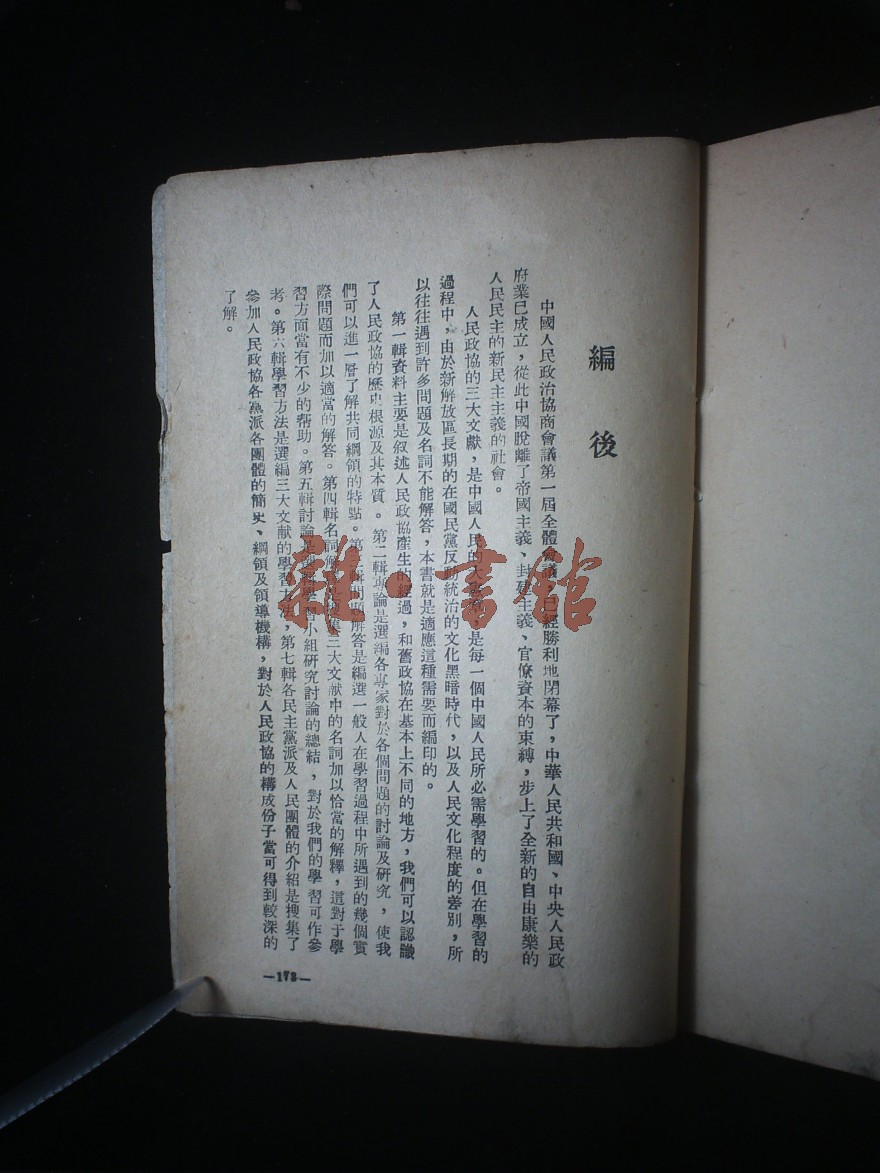 編後
中國人民政治協商會議第一屆全體會議,已經勝利地閉幕了,中華人民共和國、中央人民政
府業已成立,從此中國脫離了帝國主義、封建主義、官僚資本的束縛,步上了全新的自由康樂的
人民民主的新民主主義的社會。
人民政協的三大文獻,是中國人民的大憲章,是每一個中國人民所必需學習的。但在學習的
過程中,由於新解放區長期的在國民黨反動統治的文化黑暗時代,以及人民文化程度的差別,所
以往往遇到許多問題及名詞不能解答,本書就是適應這種需要而編印的。
第一輯資料主要是叙述人民政協產生的經過,和舊政協在基本上不同的地方,我們可以認識
了人民政協的歷史根源及其本質。第二輯專論是選編各專家對於各個問題的討論及研究,使我
們可以進一層了解共同綱領的特點。第三輯問題解答是編選一般人在學習過程中所遇到的幾個實
際問題而加以適當的解答。第四輯名詞解釋是搜集三大文献中的名詞加以恰當的解釋,這對于學
習方面當有不少的帮助。第五輯討論是學習小組研究討論的總結,對於我們的學習可作參
考。第六輯學習方法是選編三大文献的學習方法,第七輯各民主黨派及人民團體的介紹是搜集了
參加人民政協各黨派各團體的簡史、綱領及領導機構,對於人民政協的構成份子當可得到較深的
了解。
—173—
雜·書館